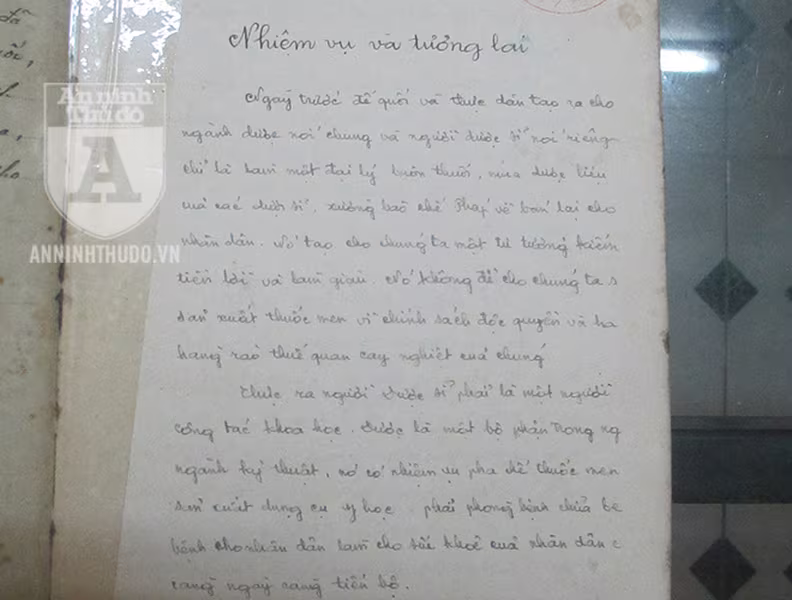 Nhiệm vụ và tương lai
Ngày trước đế quối và thực dân tạo ra cho
ngành dược nói chung và người dược sĩ nói riêng
chỉ là làm một đại lý buôn thuốc, mua dược liệu
của các dượt sĩ, xưởng bào chế Pháp về bán lại cho
nhân dân. Nó tạo cho chúng ta một tư tưởng kiếm
tiền lời và làm giàu. Nó không để cho chúng ta s
sản xuất thuốc men vì chính sách độc quyền và ha
hàng rào thuế quan cay nghiệt của chúng
Thực ra người Dược sĩ phải là một người
công tác khoa học. Dược là một bộ phận trong ng
ngành kỹ thuật, nó có nhiệm vụ pha chế thuốc men
sản xuất dụng cụ y học phải phòng bệnh chữa bê
bệnh cho nhân dân làm cho sức khoẻ của nhân dân c
càng ngày càng tiến bộ.
An ninh
Thủ đô
A
ANNINHTHUDO.VN
đã
cho